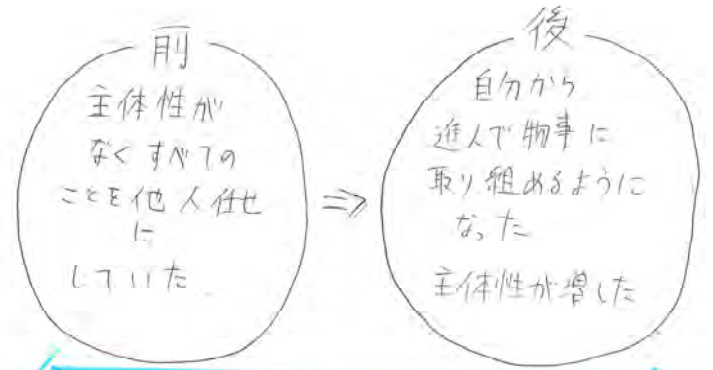 前
主体性が
なくすべての
ことを他人任せ
に
していた
⇒
後
自分から
進んで物事に
取り組めるように
なった
主体性が増した